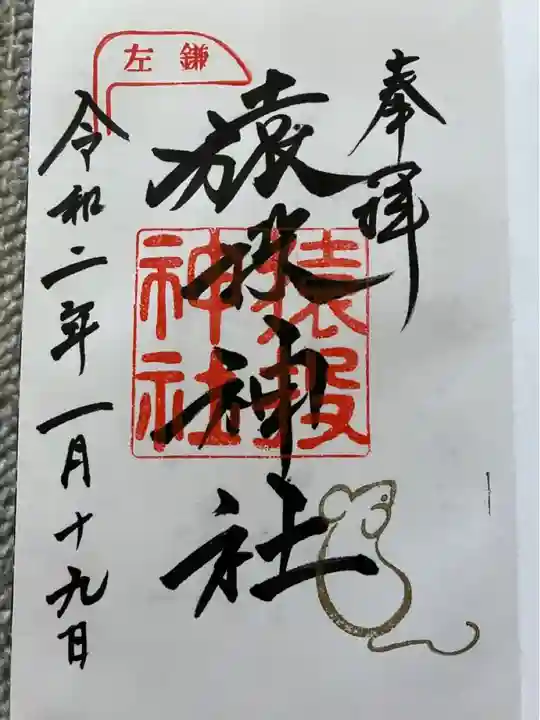 奉拝
猿投神社
猿投神社
左鎌
令和二年一月十九日